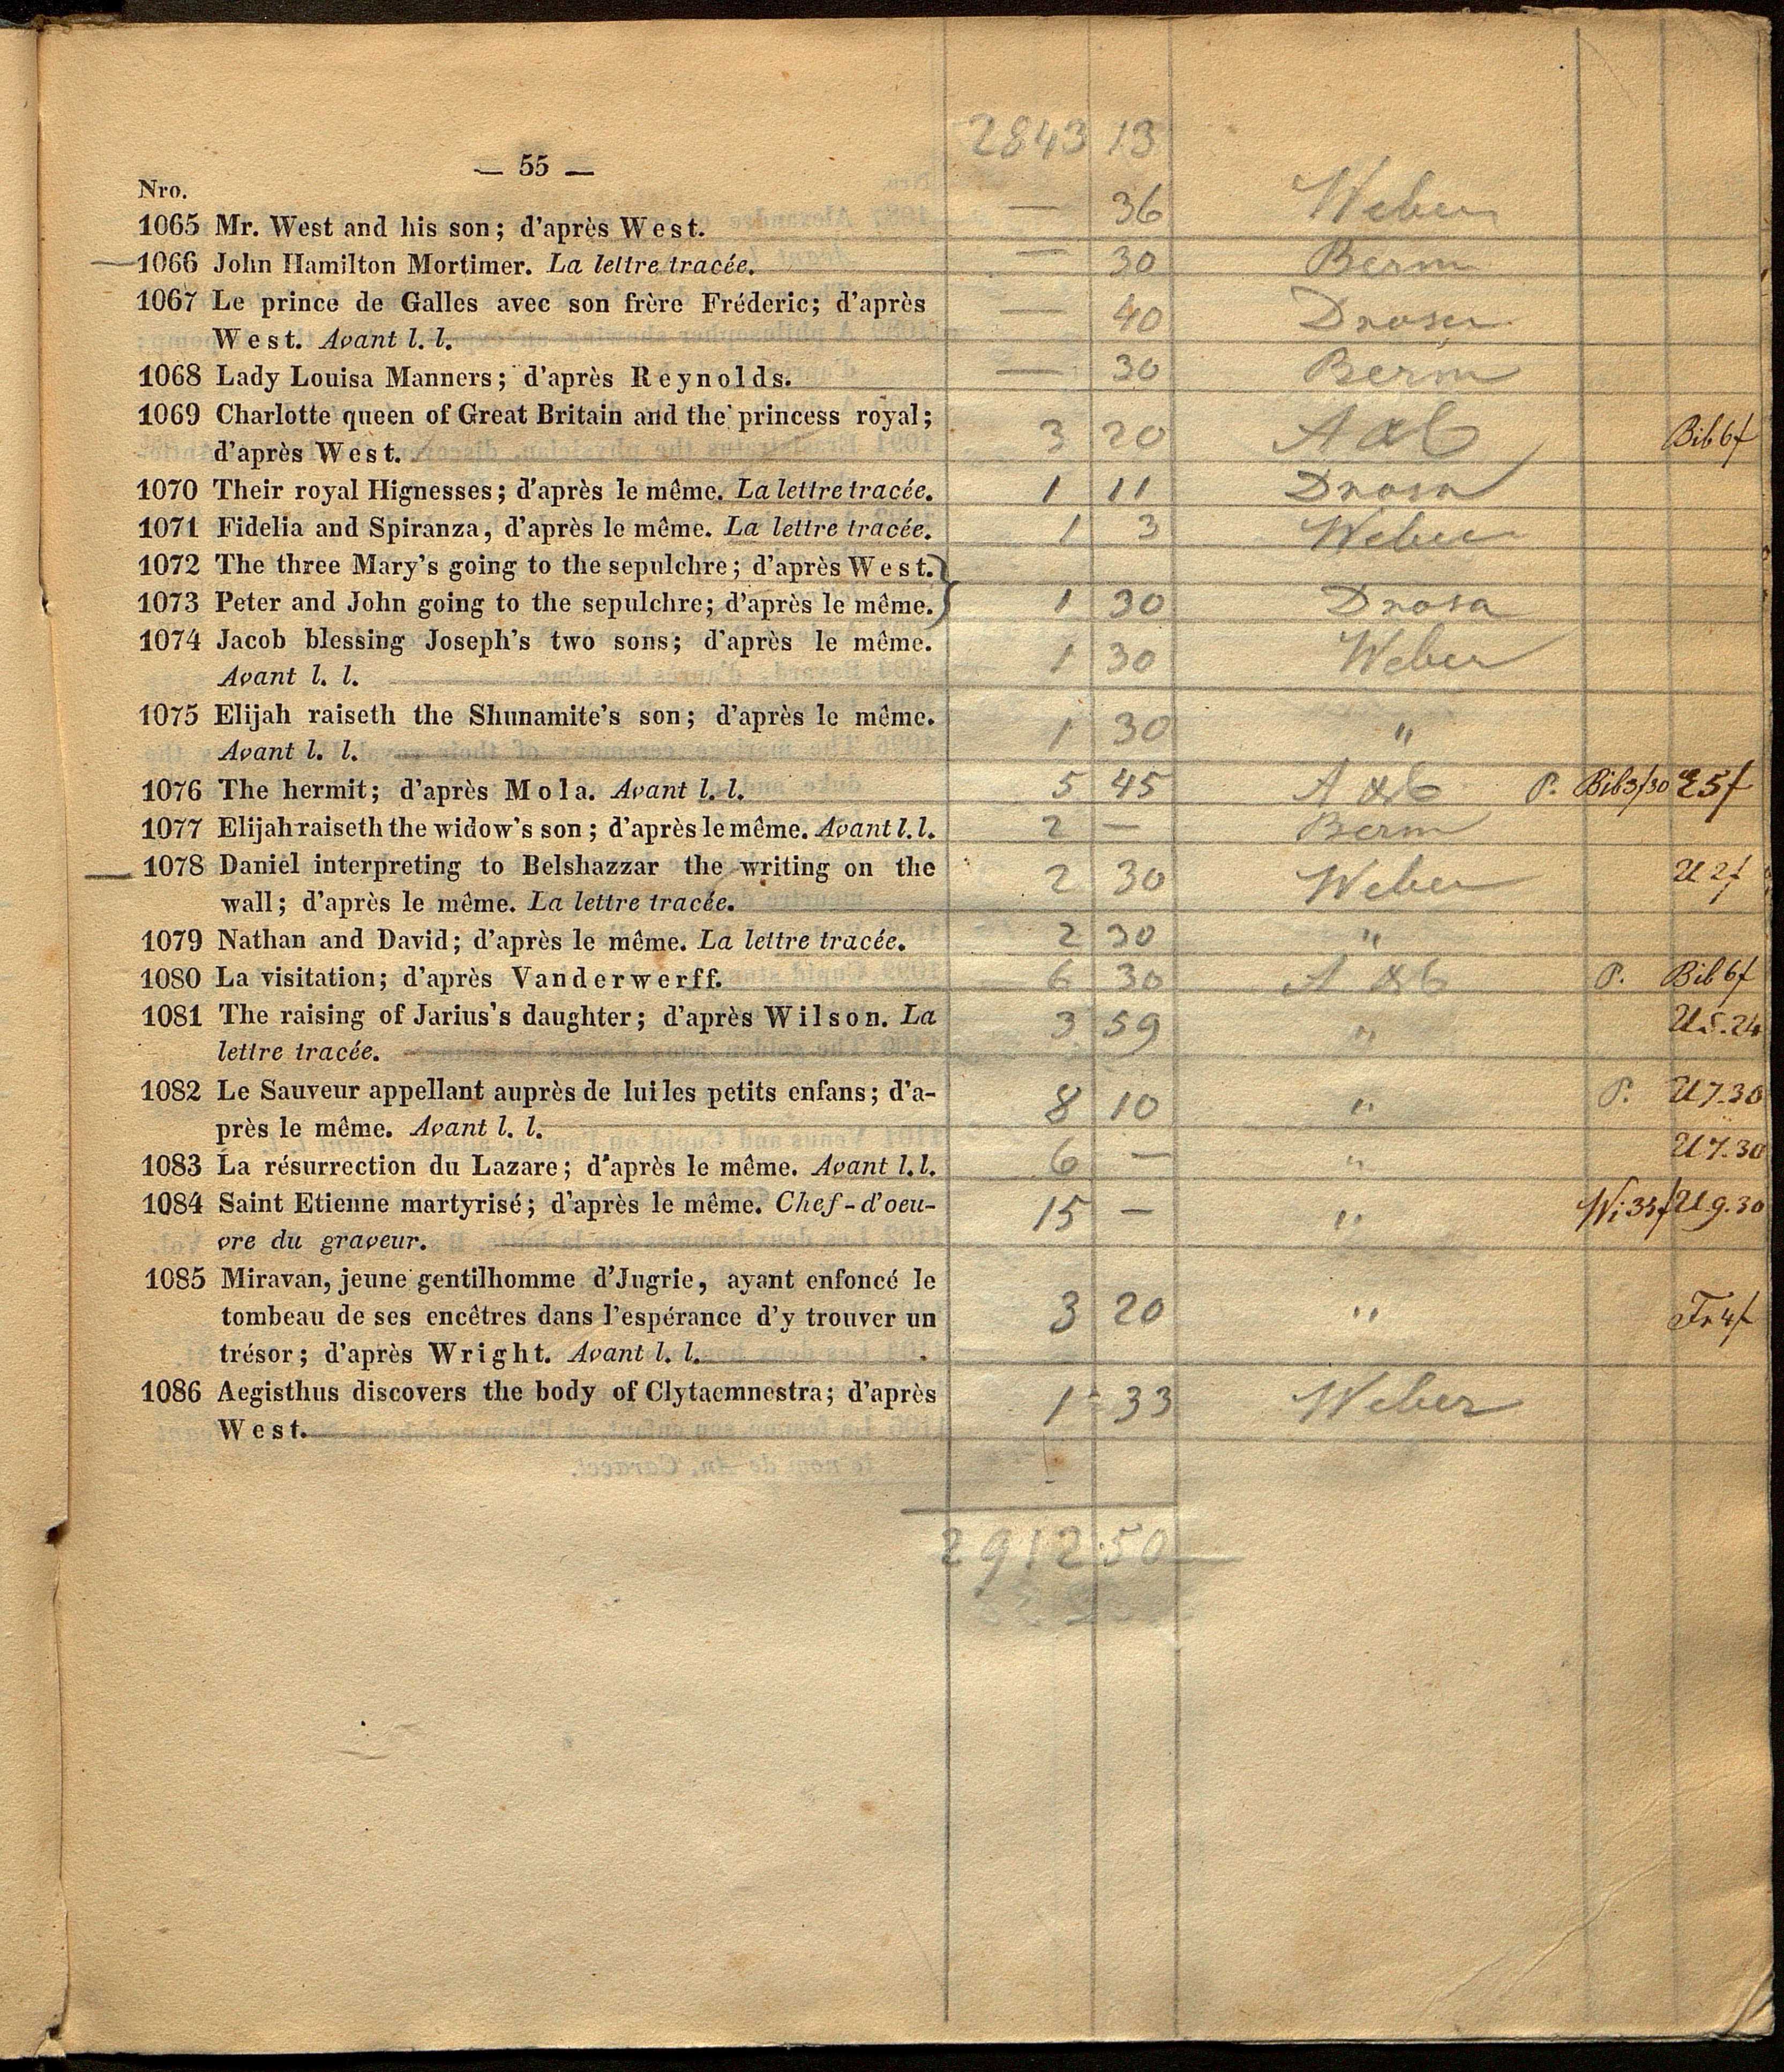 2843 13
— 55 —
Nro.
1065 Mr. West and his son; d'après West. — 36 Weber
1066 John Hamilton Mortimer. La lettre tracée. — 30 Berm
1067 Le prince de Galles avec son frère Fréderic; d'après — 40
West. Avant l. l.
1068 Lady Louisa Manners; d'après Reynolds. — 30 Berm
1069 Charlotte queen of Great Britain and the princess royal; 3 20 Bib 6f
d'après West.
1070 Their royal Hignesses; d'après le même. La lettre tracée. 1 11
1071 Fidelia and Spiranza, d'après le même. La lettre tracée. 1 3 Weber
1072 The three Mary's going to the sepulchre; d'après West.
1073 Peter and John going to the sepulchre; d'après le même. 1 30
1074 Jacob blessing Joseph's two sons; d'après le même. 1 30 Weber
Avant l. l.
1075 Elijah raiseth the Shunamite's son; d'après le même. 1 30 "
Avant l. l.
1076 The hermit; d'après Mola. Avant l. l. 5 45 P. Bib 3/30 5f
1077 Elijah raiseth the widow's son; d'après le même. Avant l. l. 2 — Berm
1078 Daniel interpreting to Belshazzar the writing on the 2 30 Weber U 2f
wall; d'après le même. La lettre tracée.
1079 Nathan and David; d'après le même. La lettre tracée. 2 30 "
1080 La visitation; d'après Vanderwerff. 6 30 P. Bib 6f
1081 The raising of Jarius's daughter; d'après Wilson. La 3 59 " U 5.24
lettre tracée.
1082 Le Sauveur appellant auprès de lui les petits enfans; d'a- 8 10 " P. U 7.30
près le même. Avant l. l.
1083 La résurrection du Lazare; d'après le même. Avant l. l. 6 — " U 7.30
1084 Saint Etienne martyrisé; d'après le même. Chef-d'oeu- 15 — " U 9.30
vre du graveur.
1085 Miravan, jeune gentilhomme d'Jugrie, ayant enfoncé le
tombeau de ses encêtres dans l'espérance d'y trouver un 3 20 " Fr 4f
trésor; d'après Wright. Avant l. l.
1086 Aegisthus discovers the body of Clytaemnestra; d'après 1 33 Weber
West.
2912 50